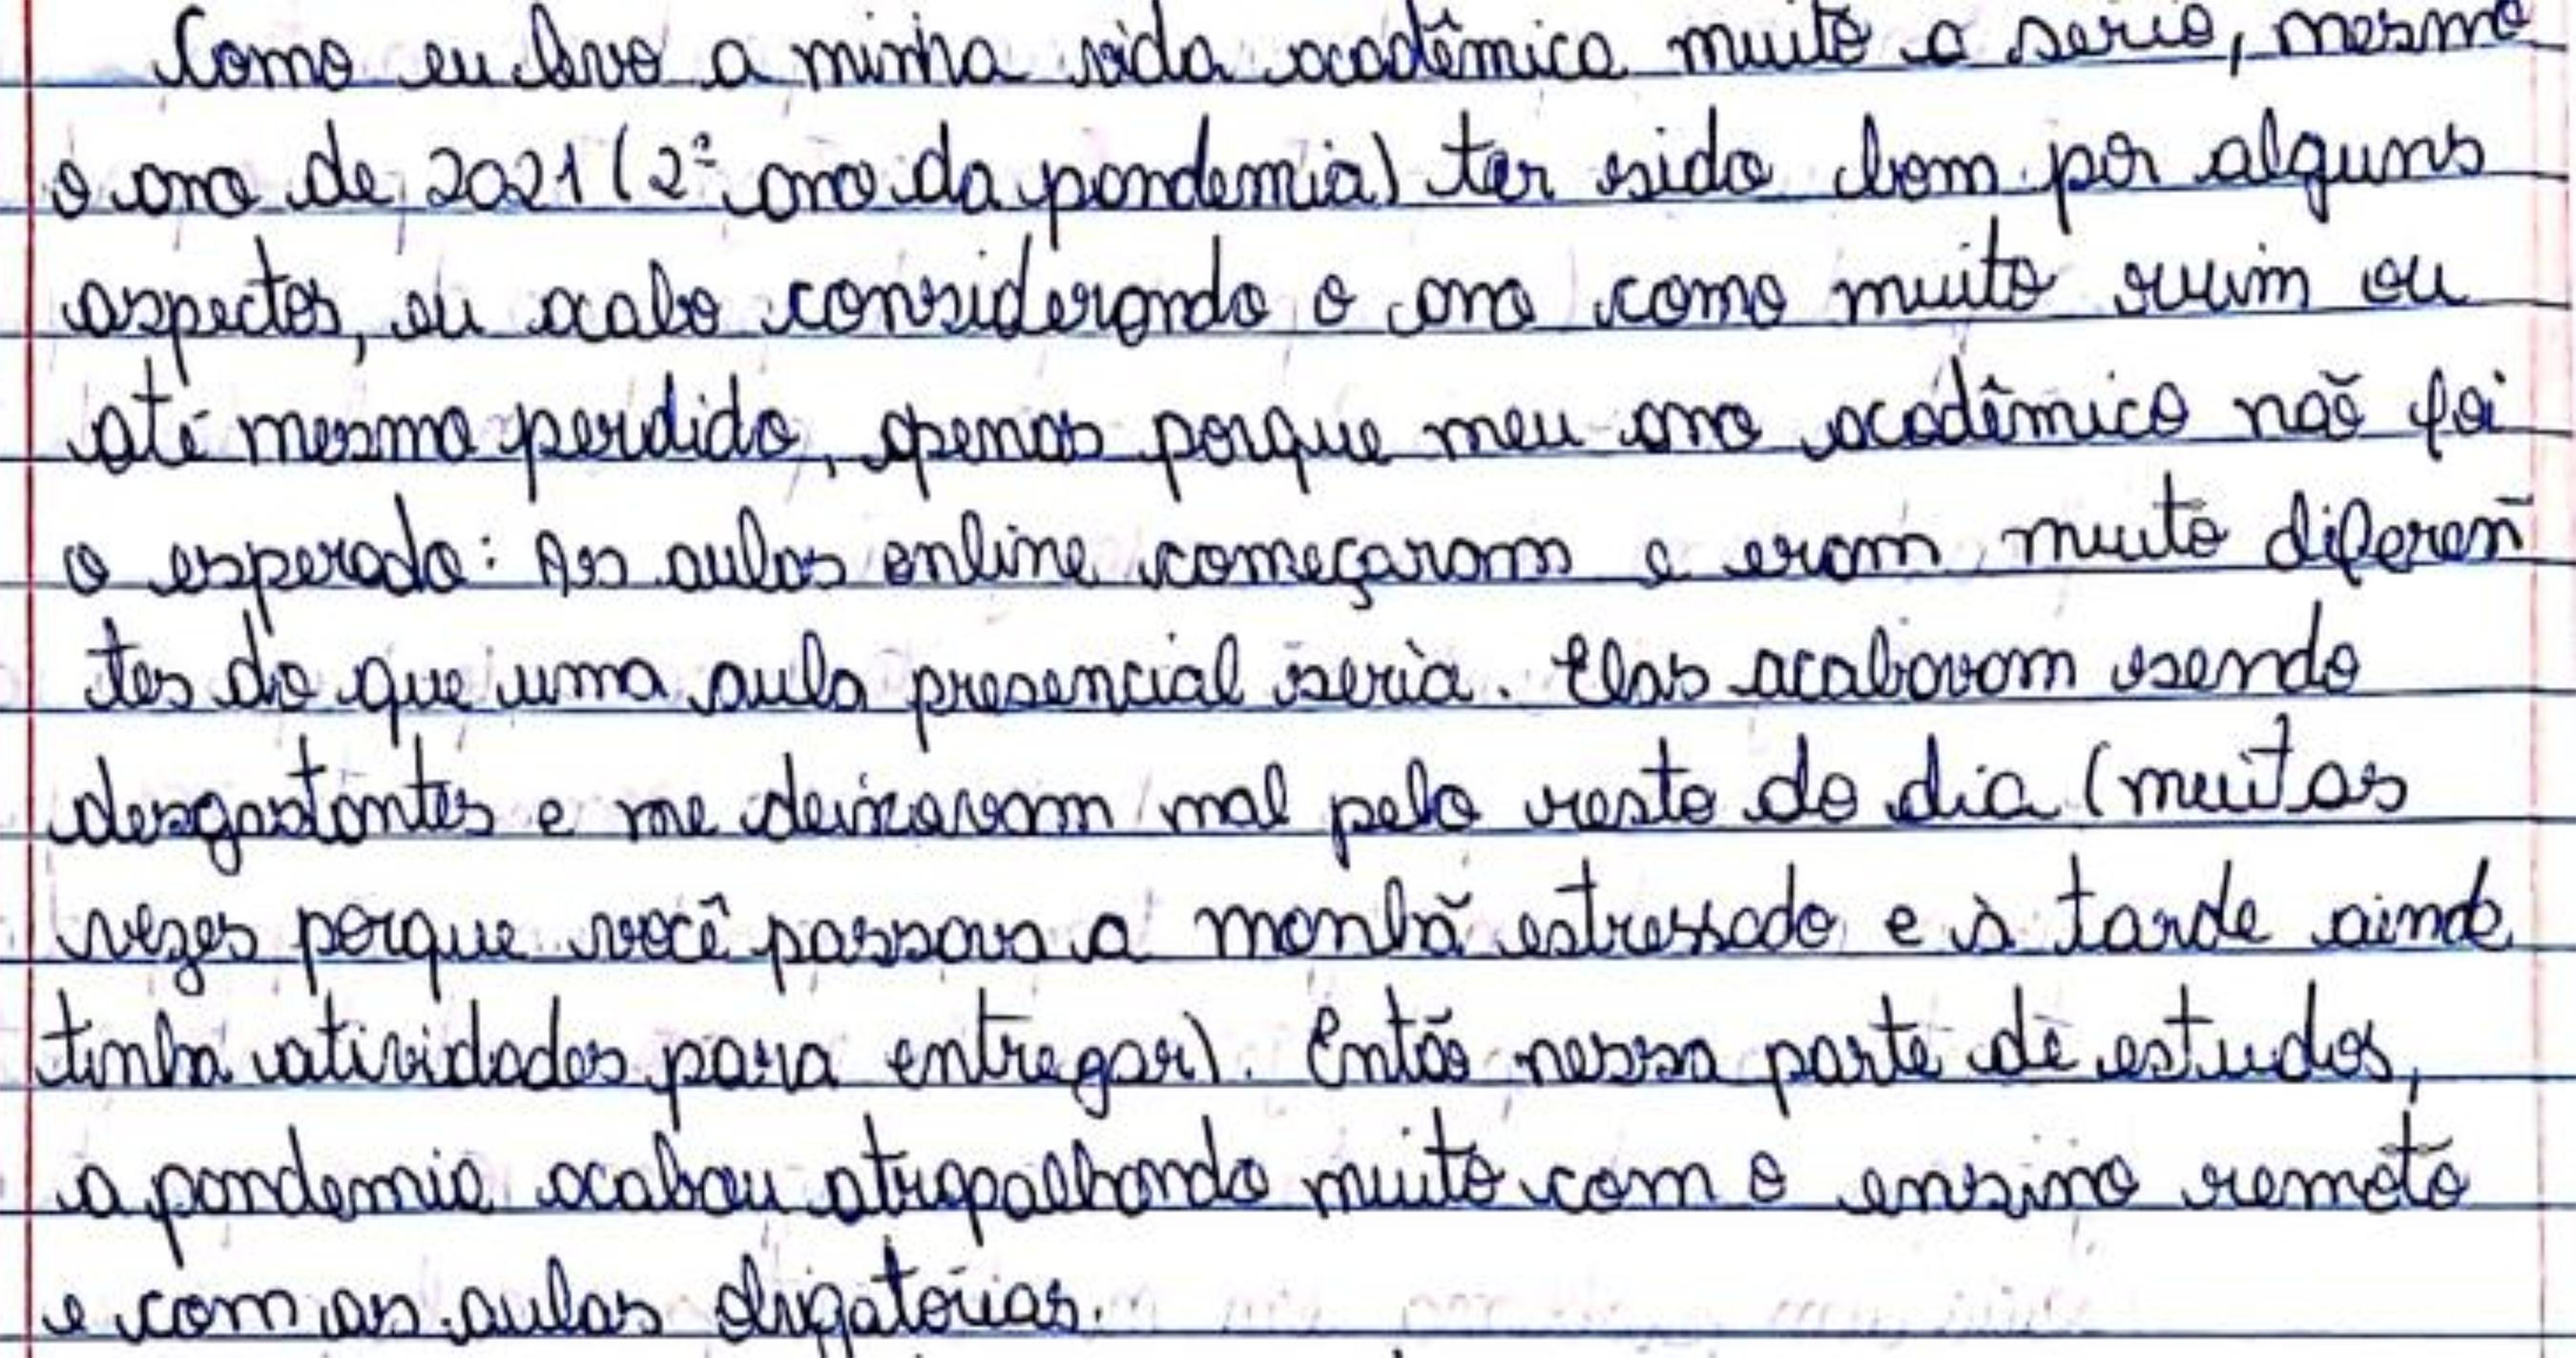 Como eu levo a minha vida acadêmica muito a serio, mesmo
o ano de 2021 (2º ano da pandemia) ter sido bom por alguns
aspectos, eu acabo considerando o ano como muito ruim ou
até mesmo perdido, apenas porque meu ano acadêmico não foi
o esperado: As aulas online começaram e eram muito diferen-
tes do que uma aula presencial seria. Elas acabavam sendo
desgastantes e me deixavam mal pelo resto do dia (muitas
vezes porque você passava a manhã estressado e à tarde ainda
tinha atividades para entregar). Então nessa parte de estudos,
a pandemia acabou atrapalhando muito com o ensino remoto
e com as aulas obrigatórias.